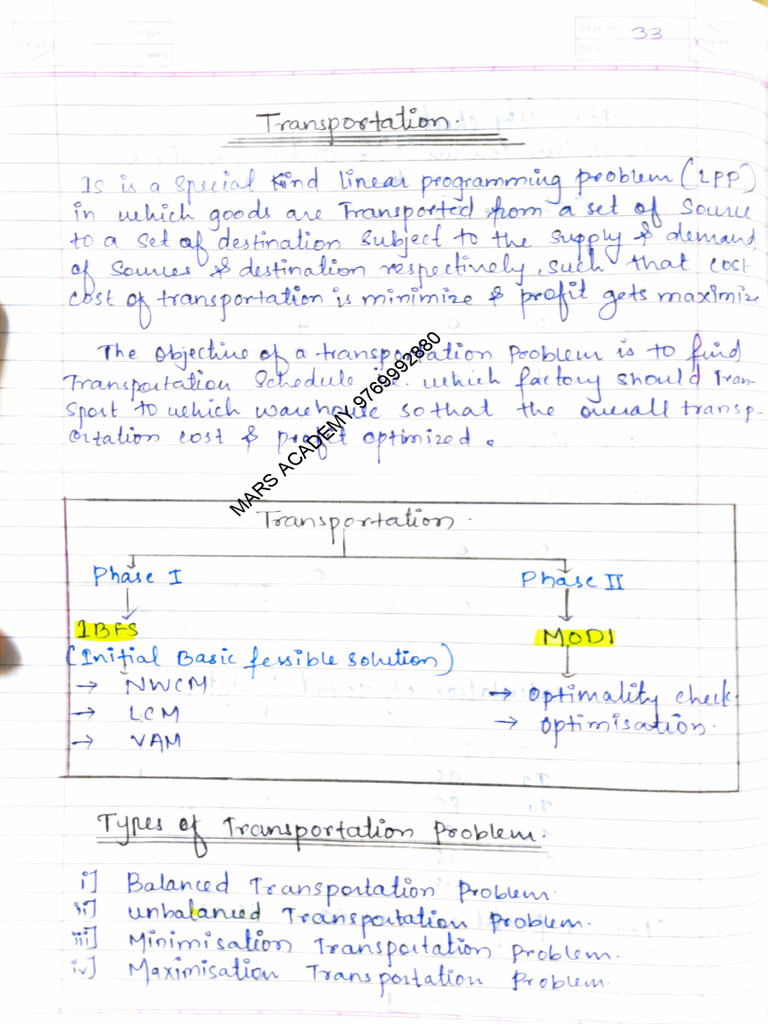 33
Transportation.
Is is a special kind linear programming problem (LPP)
in which goods are Transported from a set of source
to a set of destination subject to the supply & demand
of sources & destination respectively, such that cost
cost of transportation is minimize & profit gets maximize
The objective of a transportation problem is to find
Transportation Schedule i.e. which factory should Tran-
sport to which warehouse so that the overall transp-
ortation cost & profit optimized.
MARS ACADEMY 9769992880
Transportation.
Phase I
Phase II
IBFS
MODI
(Initial Basic fessible solution)
→ NWCM
→ optimality check.
→ LCM
→ optimisation.
→ VAM
Types of Transportation Problem.
i] Balanced Transportation Problem.
ii] unbalanced Transportation Problem.
iii] Minimisation Transportation Problem.
iv] Maximisation Transportation Problem.